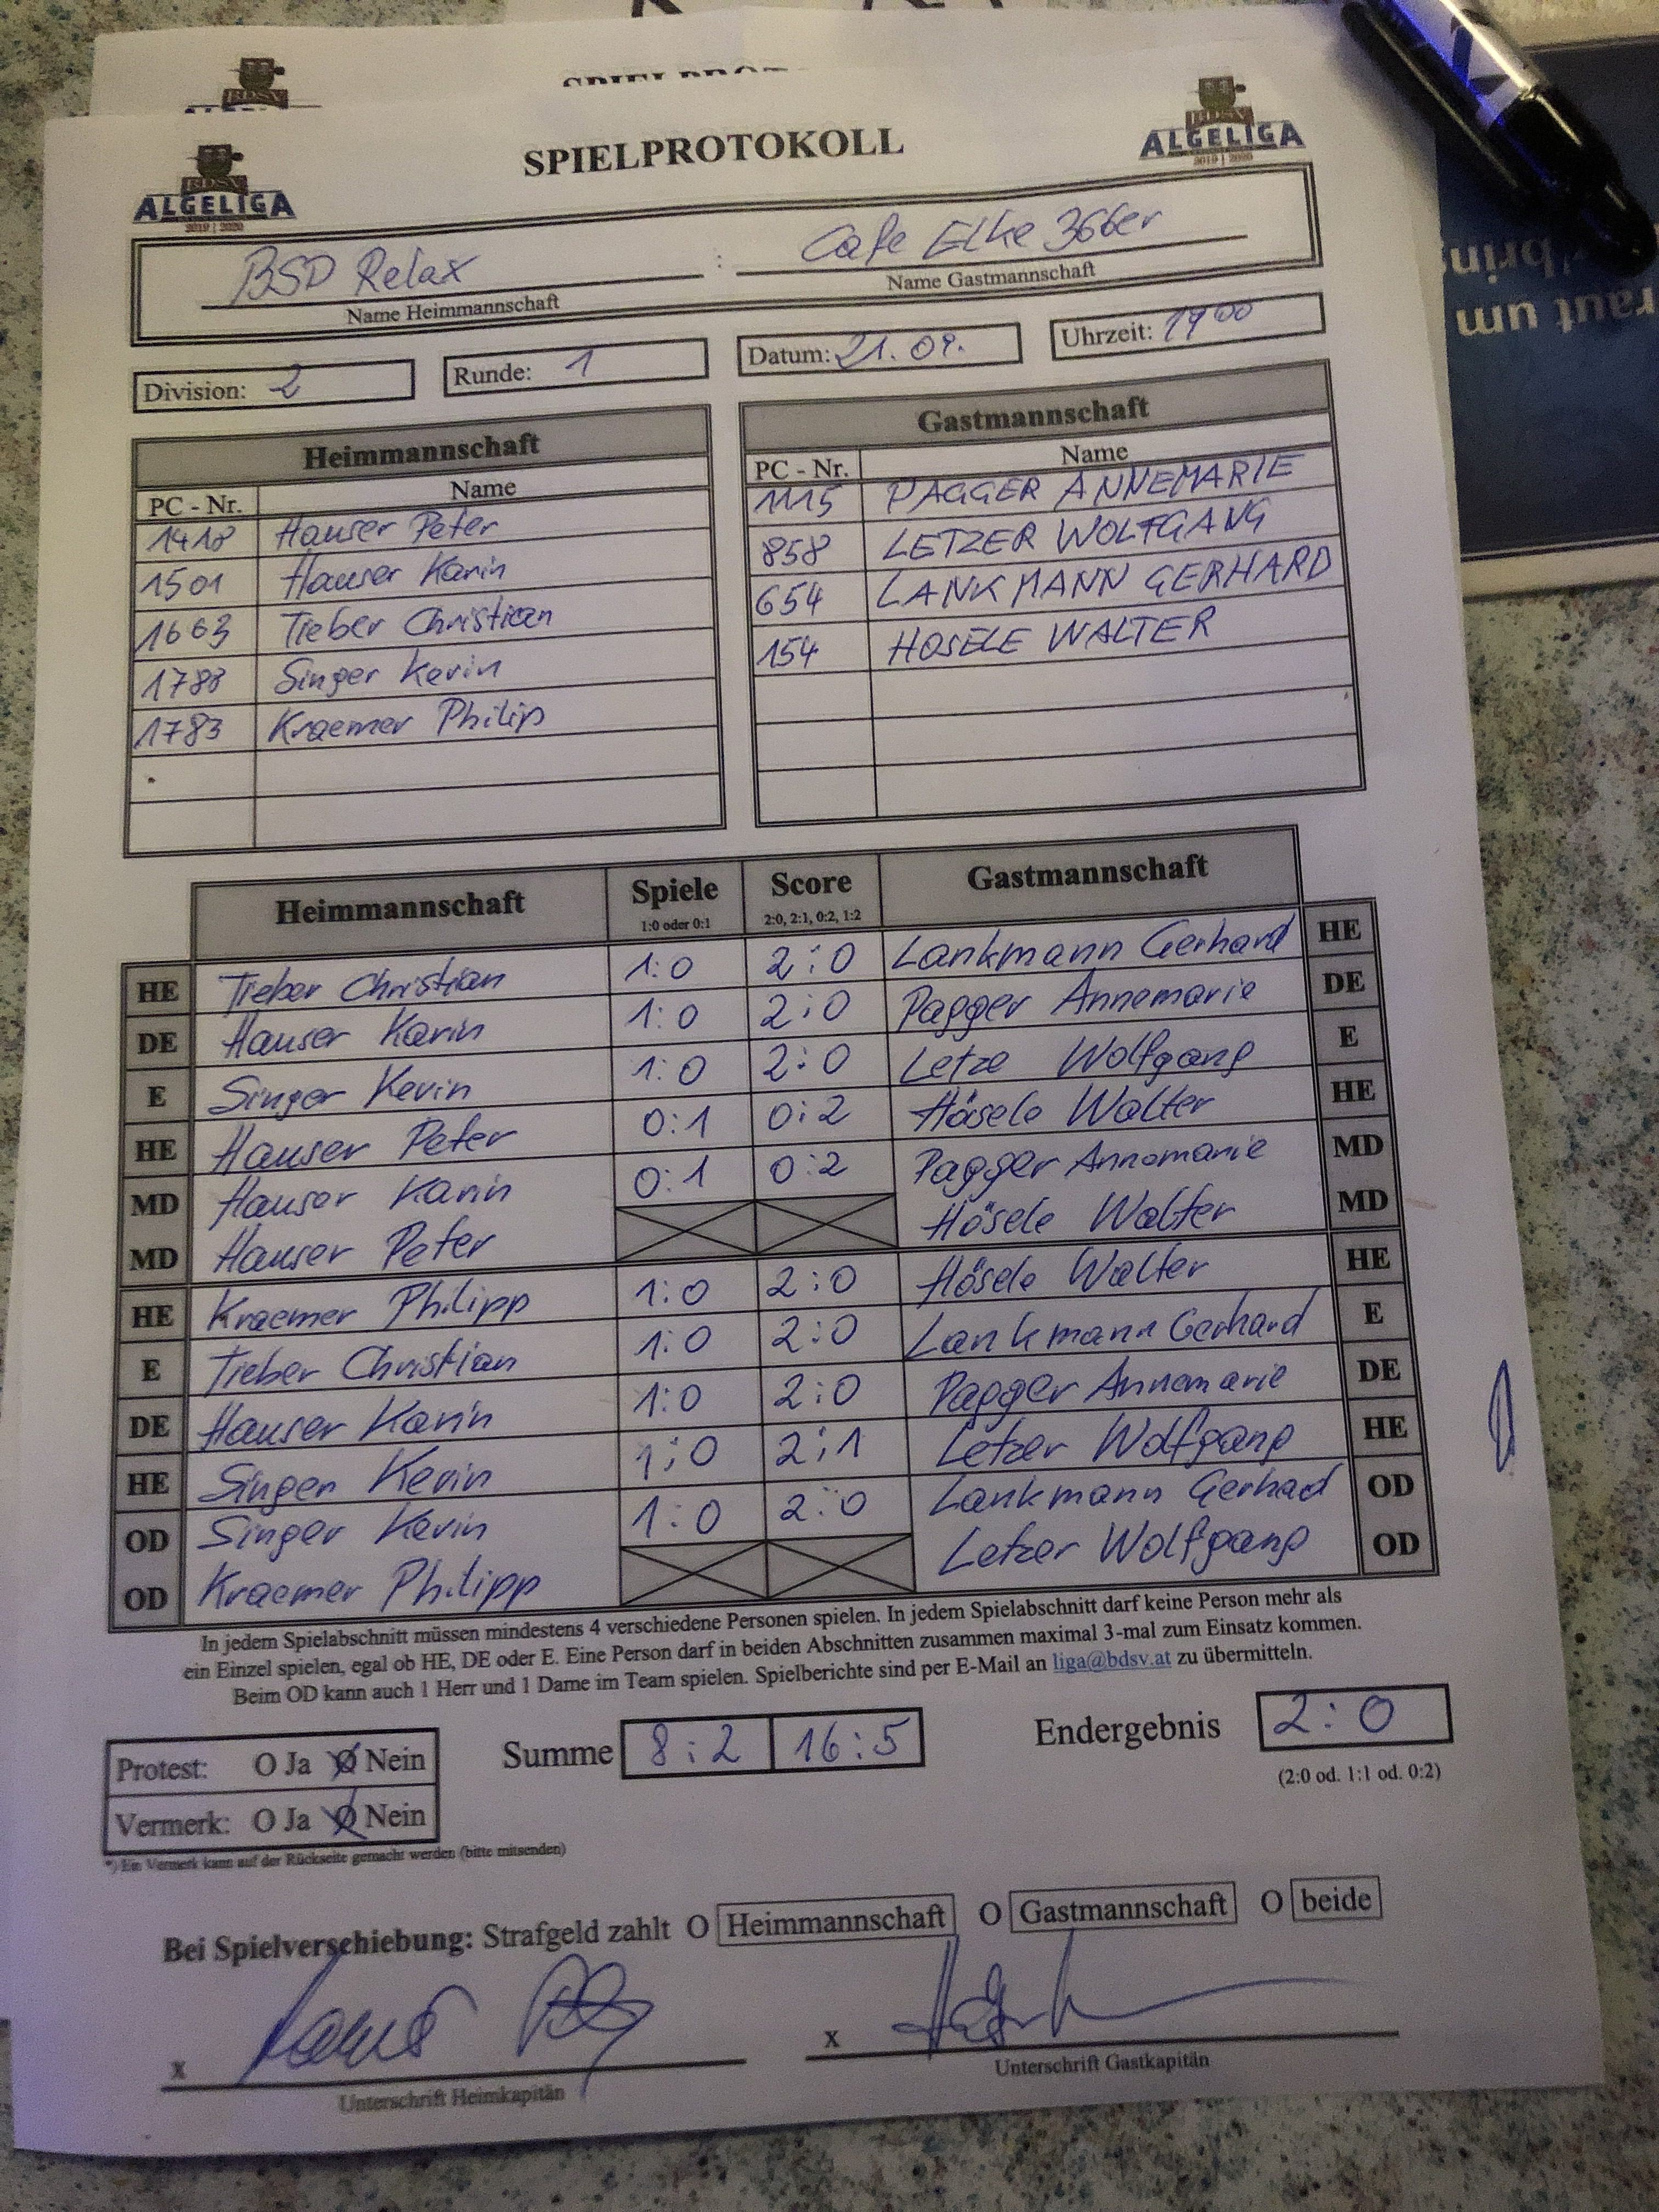 SPIELPROTOKOLL
BDSV
ALGELIGA
2019 | 2020
SPIELPROTOKOLL
BDSV
ALGELIGA
2019 | 2020
BDSV
ALGELIGA
2019 | 2020
BSD Relax : Cafe Elke 366er
Name Heimmannschaft Name Gastmannschaft
Division: 2 Runde: 1 Datum: 21.09. Uhrzeit: 19 00
Heimmannschaft
PC - Nr. Name
1418 Hauser Peter
1501 Hauser Karin
1663 Tieber Christian
1788 Singer Kevin
1783 Kraemer Philip
Gastmannschaft
PC - Nr. Name
1115 PAGGER ANNEMARIE
858 LETZER WOLFGANG
654 LANKMANN GERHARD
154 HÖSELE WALTER
Heimmannschaft Spiele Score Gastmannschaft
1:0 oder 0:1 2:0, 2:1, 0:2, 1:2
HE Tieber Christian 1:0 2:0 Lankmann Gerhard HE
DE Hauser Karin 1:0 2:0 Pagger Annemarie DE
E Singer Kevin 1:0 2:0 Letze Wolfgang E
HE Hauser Peter 0:1 0:2 Hösele Walter HE
MD Hauser Karin 0:1 0:2 Pagger Annemarie MD
MD Hauser Peter Hösele Walter MD
HE Kraemer Philipp 1:0 2:0 Hösele Walter HE
E Tieber Christian 1:0 2:0 Lankmann Gerhard E
DE Hauser Karin 1:0 2:0 Pagger Annemarie DE
HE Singer Kevin 1:0 2:1 Letzer Wolfgang HE
OD Singer Kevin 1:0 2:0 Lankmann Gerhad OD
OD Kraemer Philipp Letzer Wolfgang OD
In jedem Spielabschnitt müssen mindestens 4 verschiedene Personen spielen. In jedem Spielabschnitt darf keine Person mehr als
ein Einzel spielen, egal ob HE, DE oder E. Eine Person darf in beiden Abschnitten zusammen maximal 3-mal zum Einsatz kommen.
Beim OD kann auch 1 Herr und 1 Dame im Team spielen. Spielberichte sind per E-Mail an liga@bdsv.at zu übermitteln.
Protest: O Ja O Nein Summe 8:2 16:5 Endergebnis 2:0
Vermerk: O Ja O Nein (2:0 od. 1:1 od. 0:2)
*) Ein Vermerk kann auf der Rückseite gemacht werden (bitte mitsenden)
Bei Spielverschiebung: Strafgeld zahlt O Heimmannschaft O Gastmannschaft O beide
x x
Unterschrift Heimkapitän Unterschrift Gastkapitän